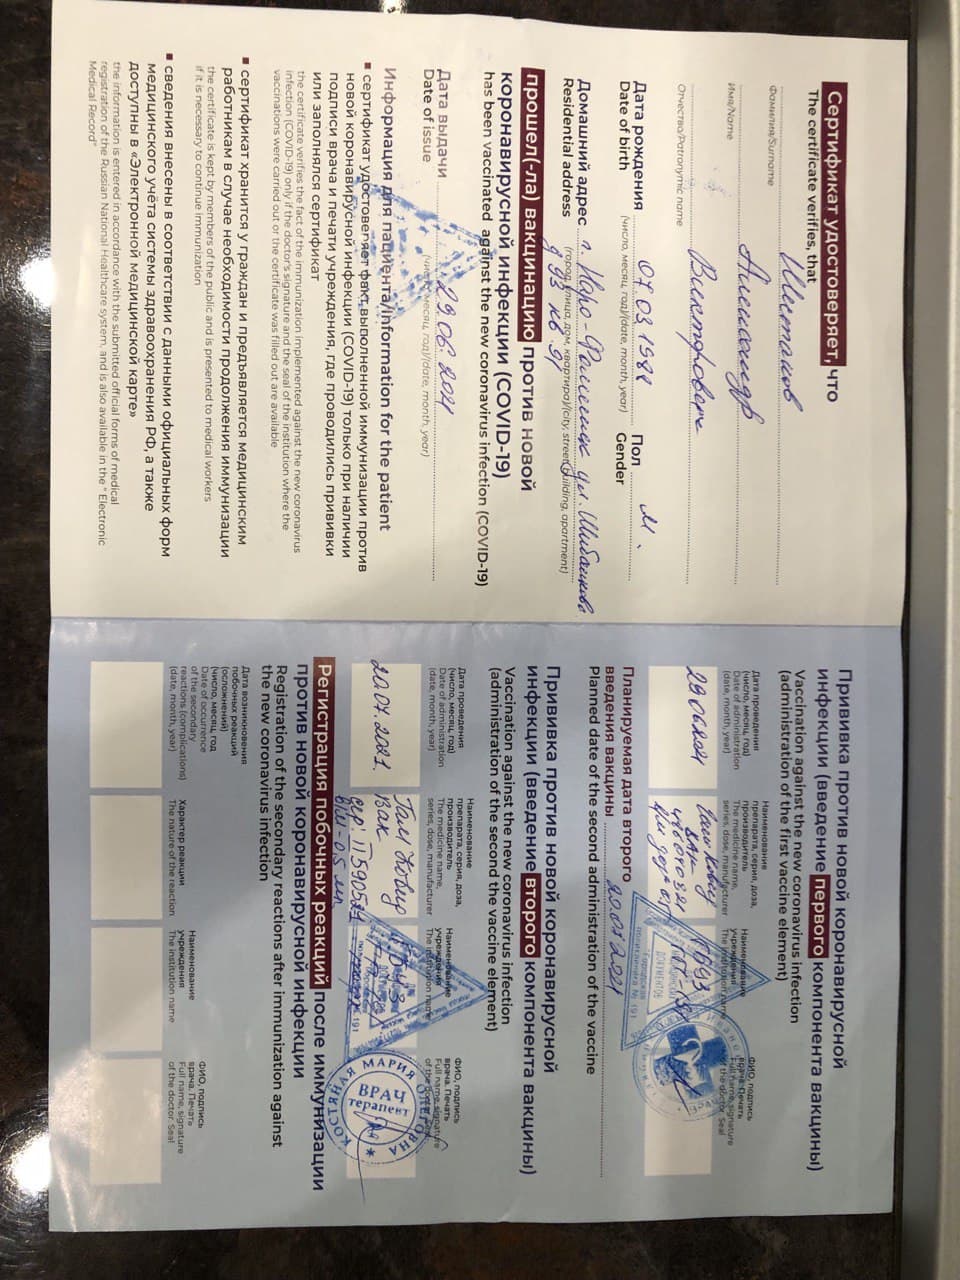 Сертификат удостоверяет, что
The certificate verifies, that
Фамилия/Surname
Имя/Name
Александр
Отчество/Patronymic name
Викторович
Дата рождения 07.03.1988 Пол М.
Date of birth (число, месяц, год)/(date, month, year) Gender
Домашний адрес г. Наро-Фоминск ул. Шибанкова
Residential address (город, улица, дом, квартира)/(city, street, building, apartment)
д 93 кв 91
прошел(-ла) вакцинацию против новой
коронавирусной инфекции (COVID-19)
has been vaccinated against the new coronavirus infection (COVID-19)
Дата выдачи 29.06.2021
Date of issue (число, месяц, год)/(date, month, year)
Информация для пациента/Information for the patient
сертификат удостоверяет факт выполненной иммунизации против
новой коронавирусной инфекции (COVID-19) только при наличии
подписи врача и печати учреждения, где проводились прививки
или заполнялся сертификат
the certificate verifies the fact of the immunization implemented against the new coronavirus
infection (COVID-19) only if the doctor's signature and the seal of the institution where the
vaccinations were carried out or the certificate was filled out are available
сертификат хранится у граждан и предъявляется медицинским
работникам в случае необходимости продолжения иммунизации
the certificate is kept by members of the public and is presented to medical workers
if it is necessary to continue immunization
сведения внесены в соответствии с данными официальных форм
медицинского учёта системы здравоохранения РФ, а также
доступны в «Электронной медицинской карте»
the information is entered in accordance with the submitted official forms of medical
registration of the Russian National Healthcare system, and is also available in the " Electronic
Medical Record"
Прививка против новой коронавирусной
инфекции (введение первого компонента вакцины)
Vaccination against the new coronavirus infection
(administration of the first vaccine element)
Дата проведения
(число, месяц, год)
Date of administration
(date, month, year)
Наименование
препарата, серия, доза,
производитель
The medicine name,
series, dose, manufacturer
Наименование
учреждения
The institution name
ФИО, подпись
врача. Печать
Full name, signature
of the doctor. Seal
29.06.2021
Гам Ковид
Вак
Городская
поликлиника № 191
ДОКУМЕНТОВ
Планируемая дата второго
введения вакцины 20.07.2021
Planned date of the second administration of the vaccine
Прививка против новой коронавирусной
инфекции (введение второго компонента вакцины)
Vaccination against the new coronavirus infection
(administration of the second the vaccine element)
Дата проведения
(число, месяц, год)
Date of administration
(date, month, year)
Наименование
препарата, серия, доза,
производитель
The medicine name,
series, dose, manufacturer
Наименование
учреждения
The institution name
ФИО, подпись
врача. Печать
Full name, signature
of the doctor. Seal
20.07.2021.
Гам Ковид
Вак
сер: II590521
КОСТЯНАЯ МАРИЯ ОЛЕГОВНА
ВРАЧ
терапевт
Регистрация побочных реакций после иммунизации
против новой коронавирусной инфекции
Registration of the secondary reactions after immunization against
the new coronavirus infection
Дата возникновения
побочных реакций
(осложнений)
(число, месяц, год)
Date of occurrence
of the secondary
reactions (complications)
(date, month, year)
Характер реакции
The nature of the reaction
Наименование
учреждения
The institution name
ФИО, подпись
врача. Печать
Full name, signature
of the doctor. Seal